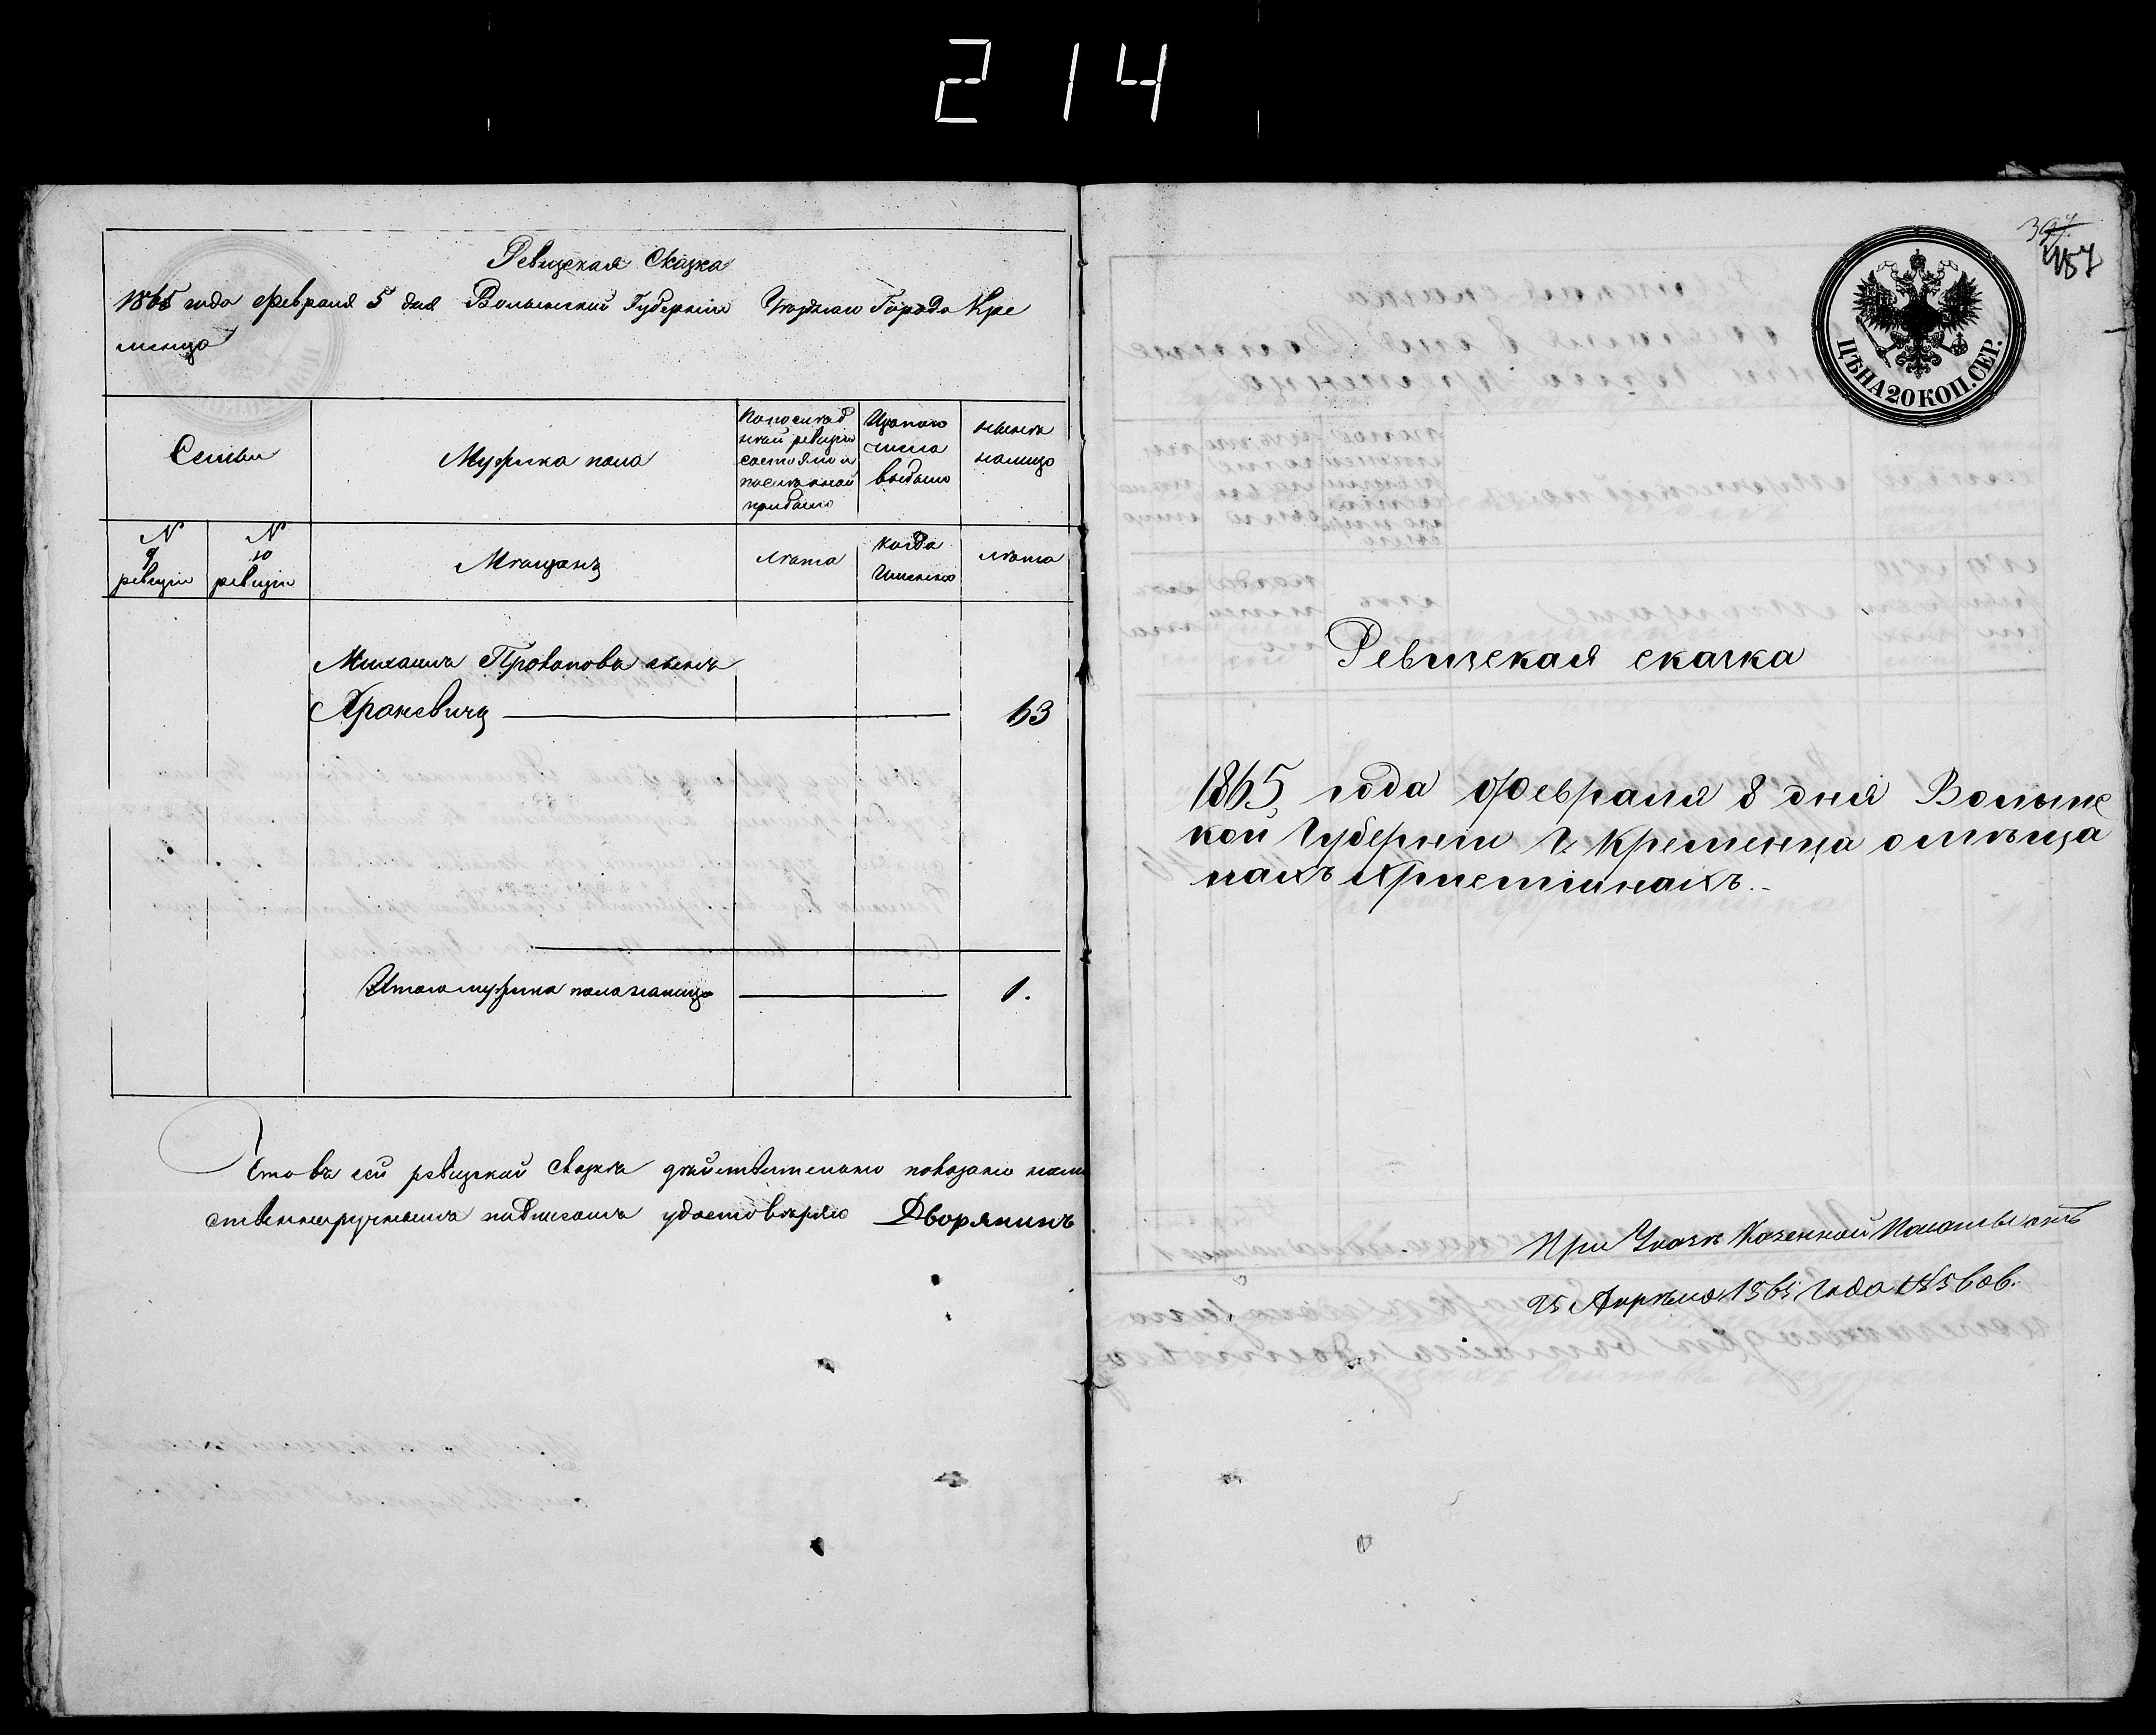 214
Ревизская Сказка
1865 года Февраля 5 дня Волынской Губернии Уезднаго Города Кре
менца
Семьи
Мужска пола
По послед
ней ревизіи
состояло и
после оной
прибыло
Изтого
числа
выбыло
ныне
налицо
N
9
ревизіи
N
10
ревизіи
Мещанъ
лета
когда
Именно
лета
Михаилъ Прокоповъ сынъ
Яроневичъ
63
Итого мужска пола налицо
1.
Что въ сей ревизской сказке действительно показано
подписомъ удостоверяю Дворянинъ
457
ЦѢНА 20 КОП. СЕР.
Ревизская сказка
1865 года Февраля 8 дня Волынс
кой Губерніи г. Кременца о меща
нахъ Християнахъ.-
При Указе Казенной Палаты отъ
25 Апреля 1865 года №